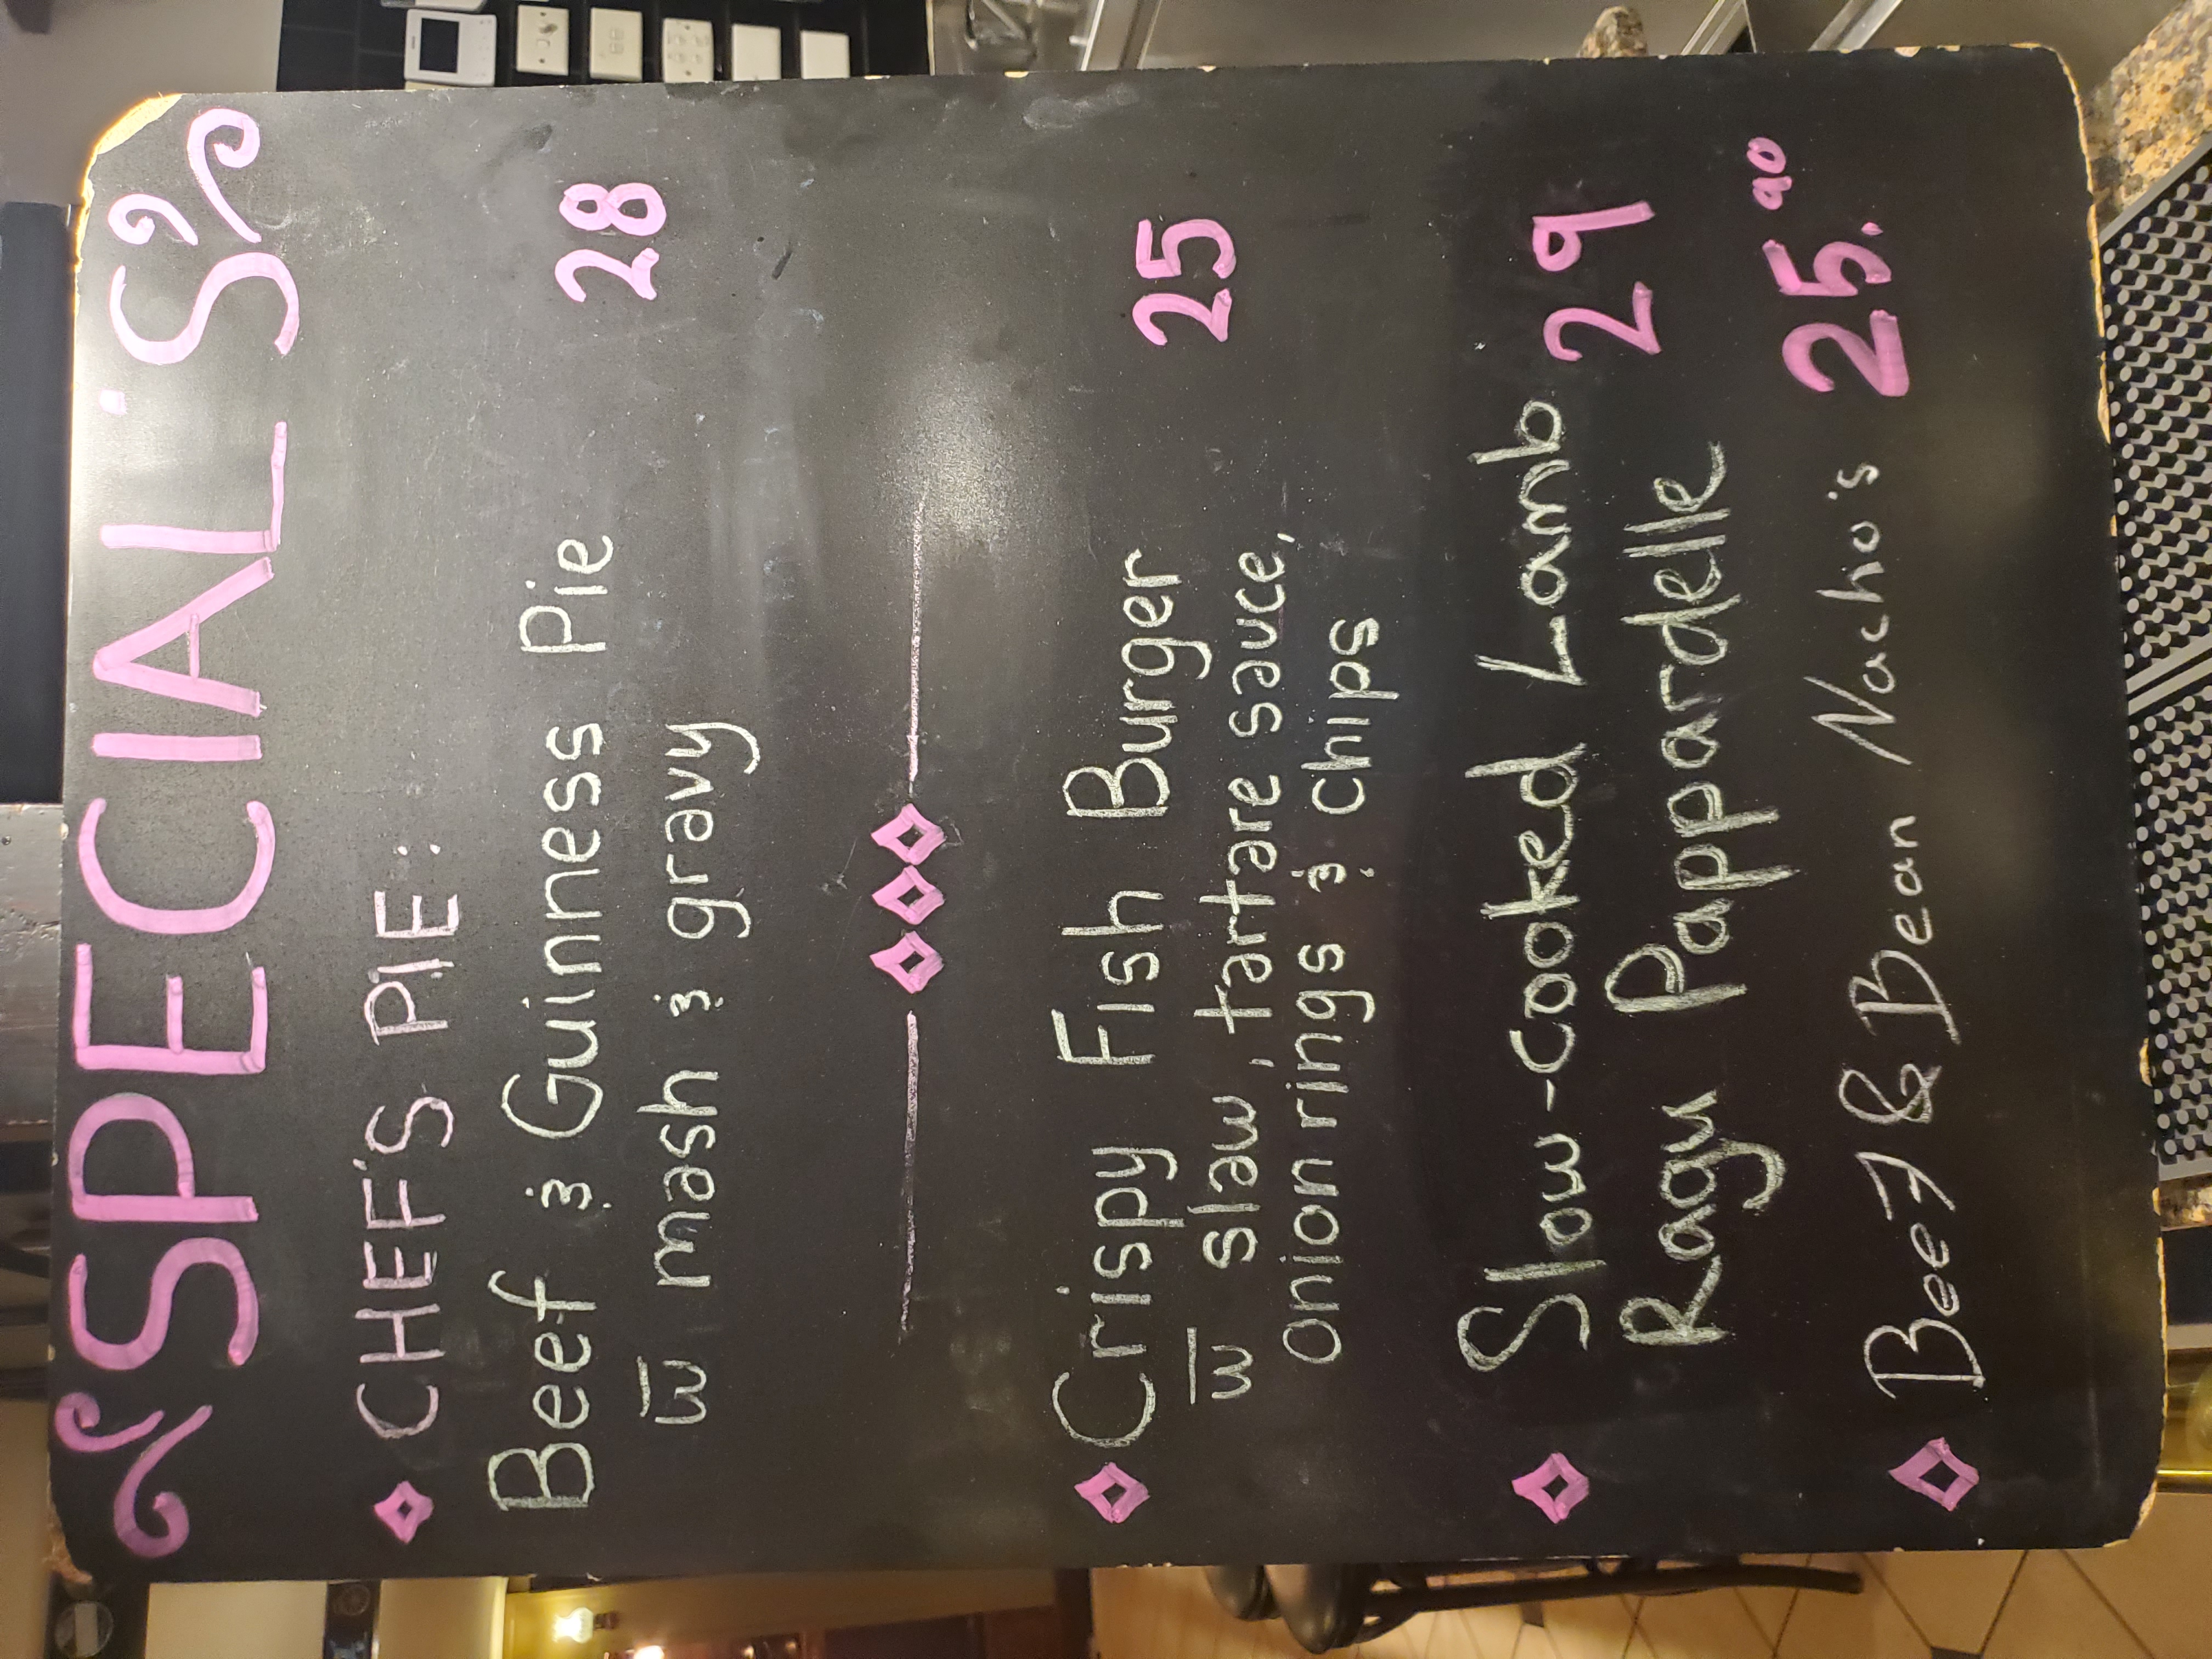 SPECIAL'S
CHEF'S PIE:
Beef & Guinness Pie 28
w̄ mash & gravy
Crispy Fish Burger 25
w̄ slaw, tartare sauce,
onion rings & chips
Slow-cooked Lamb 29
Ragu Pappardelle
Beef & Bean Nacho's 25.90